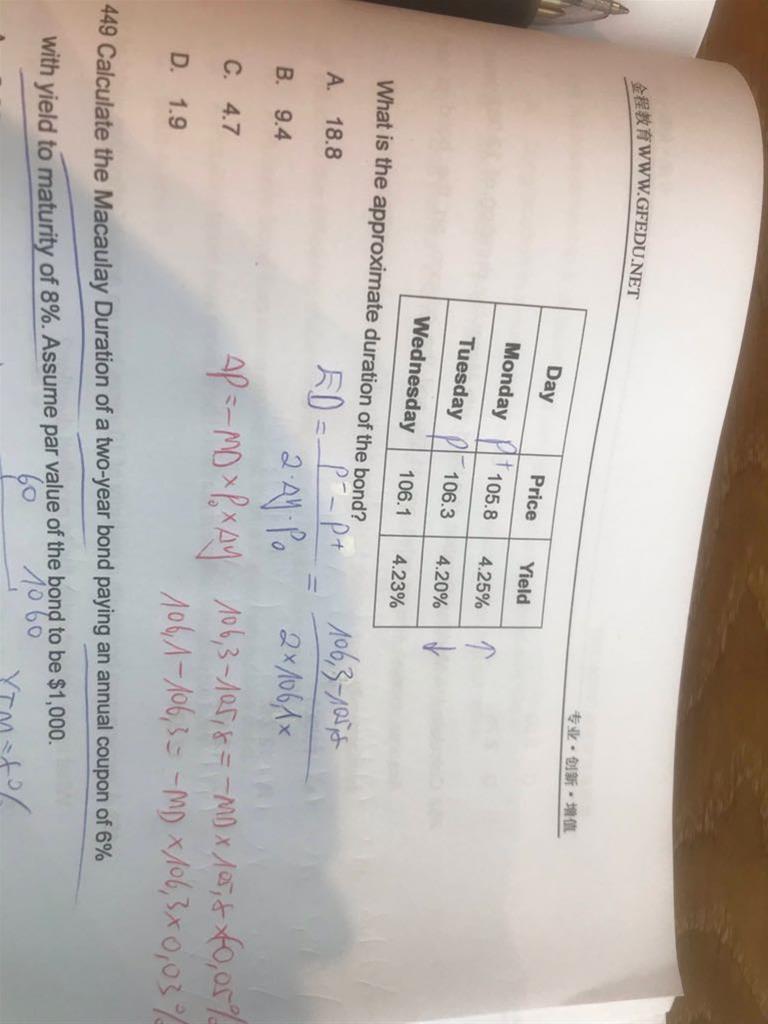 金程教育WWW.GFEDU.NET 专业·创新·增值
Day Price Yield
Monday P+ 105.8 4.25% ↑
Tuesday P- 106.3 4.20% ↓
Wednesday 106.1 4.23%
What is the approximate duration of the bond?
A. 18.8
B. 9.4
C. 4.7
D. 1.9
ED = P- - P+ / 2·Δy·P0 = 106,3-105,8 / 2×106,1×
ΔP = -MD × P0 × Δy 106,3-105,8 = -MD × 105,8 × 0,05%
106,1-106,3 = -MD × 106,3 × 0,03%
449 Calculate the Macaulay Duration of a two-year bond paying an annual coupon of 6%
with yield to maturity of 8%. Assume par value of the bond to be $1,000.
60 1060 YTM=8%